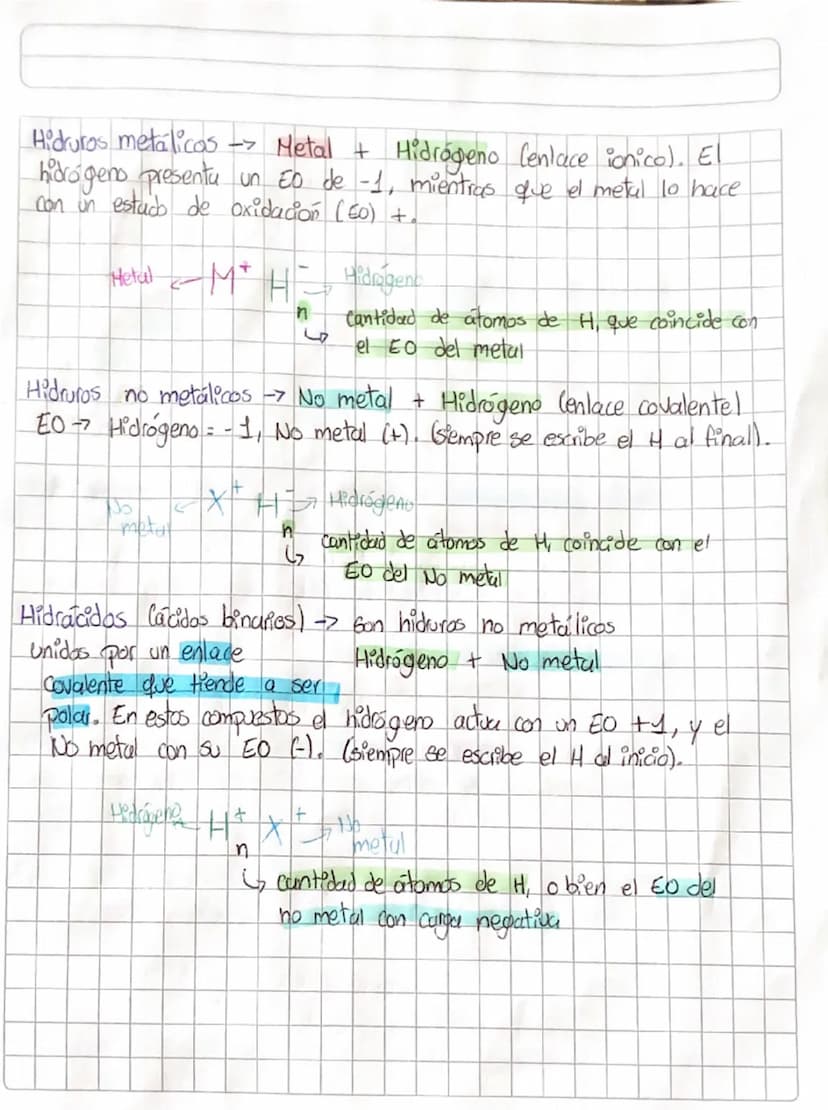 Hidruros metálicos → Metal + Hidrógeno (enlace ionico). El
hidrógeno presenta un EO de -1, mientras que el metal lo hace
con un estado de oxidación (EO) +.
Metal ← M⁺ H⁻ → Hidrógeno
n cantidad de átomos de H, que coincide con
↳ el EO del metal
Hidruros no metálicos → No metal + Hidrógeno (enlace covalente)
EO → Hidrógeno = -1, No metal (+). (siempre se escribe el H al final).
No metal ← X⁺ H⁻ → Hidrógeno
n cantidad de átomos de H, coincide con el
↳ EO del No metal
Hidrácidos (ácidos binarios) → Son hiduros no metálicos
unidos por un enlace Hidrógeno + No metal
covalente que tiende a ser
polar. En estos compuestos el hidrógeno actua con un EO +1, y el
No metal con su EO (-). (siempre se escribe el H al inicio).
Hidrógeno ← H⁺ X⁺ → No metal
n
↳ cantidad de átomos de H, o bien el EO del
no metal con carga negativa